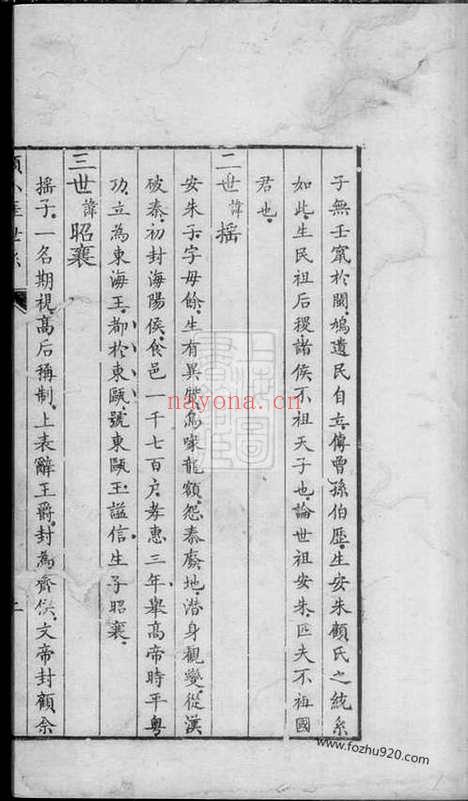 子無壬竄於閩鳩遺民自立傳曾孫伯歷生安朱顧氏之統系
如此生民祖后稷諸侯不祖天子也論世祖安朱匹夫不祖國
君也
二世諱揺
安朱子字毋餘生有異 烏喙龍額怨秦廢地潛身觀變從漢
破秦初封海陽侯食邑一千七百户孝惠三年舉高帝時平粤
功立為東海王都於東甌號東甌王謚信生子昭襄
三世諱昭襄
揺子一名期視高后稱制上表辭王爵封為齊侯文帝封顧余
nayona.cn
www.fozhu920.com